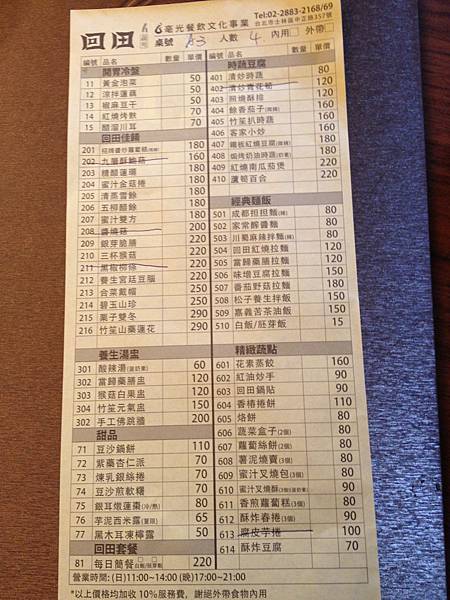 回田 蔬苑 毫光餐飲文化事業 Tel:02-2883-2168/69
台北市士林區中正路357號
桌號 A3 人數 4 內用 外帶
編號 品名 數量 單價
開胃冷盤
11 黃金泡菜 50
12 涼拌蓮藕 50
13 椒麻豆干 50
14 紅燒烤麩 70
15 醋溜川耳 70
回田佳餚
201 招牌醬炒蘿蔔糕(微辣) 180
202 九層酥鮑菇 160
203 精醋蓮環 180
204 蜜汁金菇捲 180
205 清蒸雪餘 180
206 五柳醋餘 180
207 蜜汁雙方 180
208 醬燒菇 200
209 銀芽脆膳 220
210 三杯猴菇 220
211 黑椒柳條 220
212 養生宮廷豆腦 220
213 合菜戴帽 250
214 碧玉山珍 250
215 栗子雙冬 290
216 竹笙山藥蓮花 290
養生湯盅
301 酸辣湯(蛋奶素) 60
302 當歸藥膳盅 120
303 猴菇白果盅 120
304 竹笙元氣盅 150
302 手工佛跳牆 200
甜品
71 豆沙鍋餅 110
72 紫藥杏仁派 70
73 煉乳銀絲捲 70
74 豆沙煎軟糬 70
75 銀耳燉蓮棗(冷/熱) 80
76 芋泥西米露(夏限) 65
77 黑木耳凍檸露 50
回田套餐
81 每日簡餐 白飯/胚芽飯 220
編號 品名 數量 單價
時蔬豆腐
401 清炒時蔬 80
402 清炒青花筍 120
403 照燒酥排 120
404 餘香茄子(微辣) 160
405 竹笙扒時蔬 180
406 客家小炒 180
407 鐵板紅燒豆腐(微辣) 180
408 焗烤奶油時蔬(奶素) 180
409 紅燒南瓜茄煲 220
410 蘆筍百合 220
經典麵飯
501 成都担担麵(辣) 80
502 家常醡醬麵 80
503 川蜀麻辣拌麵(辣) 80
504 回田紅燒拉麵 120
505 當歸藥膳拉麵 150
506 味增豆腐拉麵 120
507 番茄野菇拉麵 150
508 松子養生拌飯 120
509 嘉義苦茶油飯 120
510 白飯/胚芽飯 10
精緻蔬點
601 花素蒸餃 160
602 紅油炒手 90
603 回田鍋貼 90
604 香椿捲餅 110
605 烙餅 80
606 蔬菜盒子(2個) 80
607 蘿蔔絲餅(2個) 80
608 薯泥燒賣(3個) 80
609 蜜汁叉燒包(3個) 80
610 蜜汁叉燒酥(3個)(蛋奶素) 90
611 香煎蘿蔔糕(3個) 80
612 酥炸春捲(3個) 90
613 腐皮芋捲 100
614 酥炸豆腐 70
營業時間: (日)11:00~14:00 (晚)17:00~21:00
*以上價格均加收10%服務費，謝絕外帶食物內用